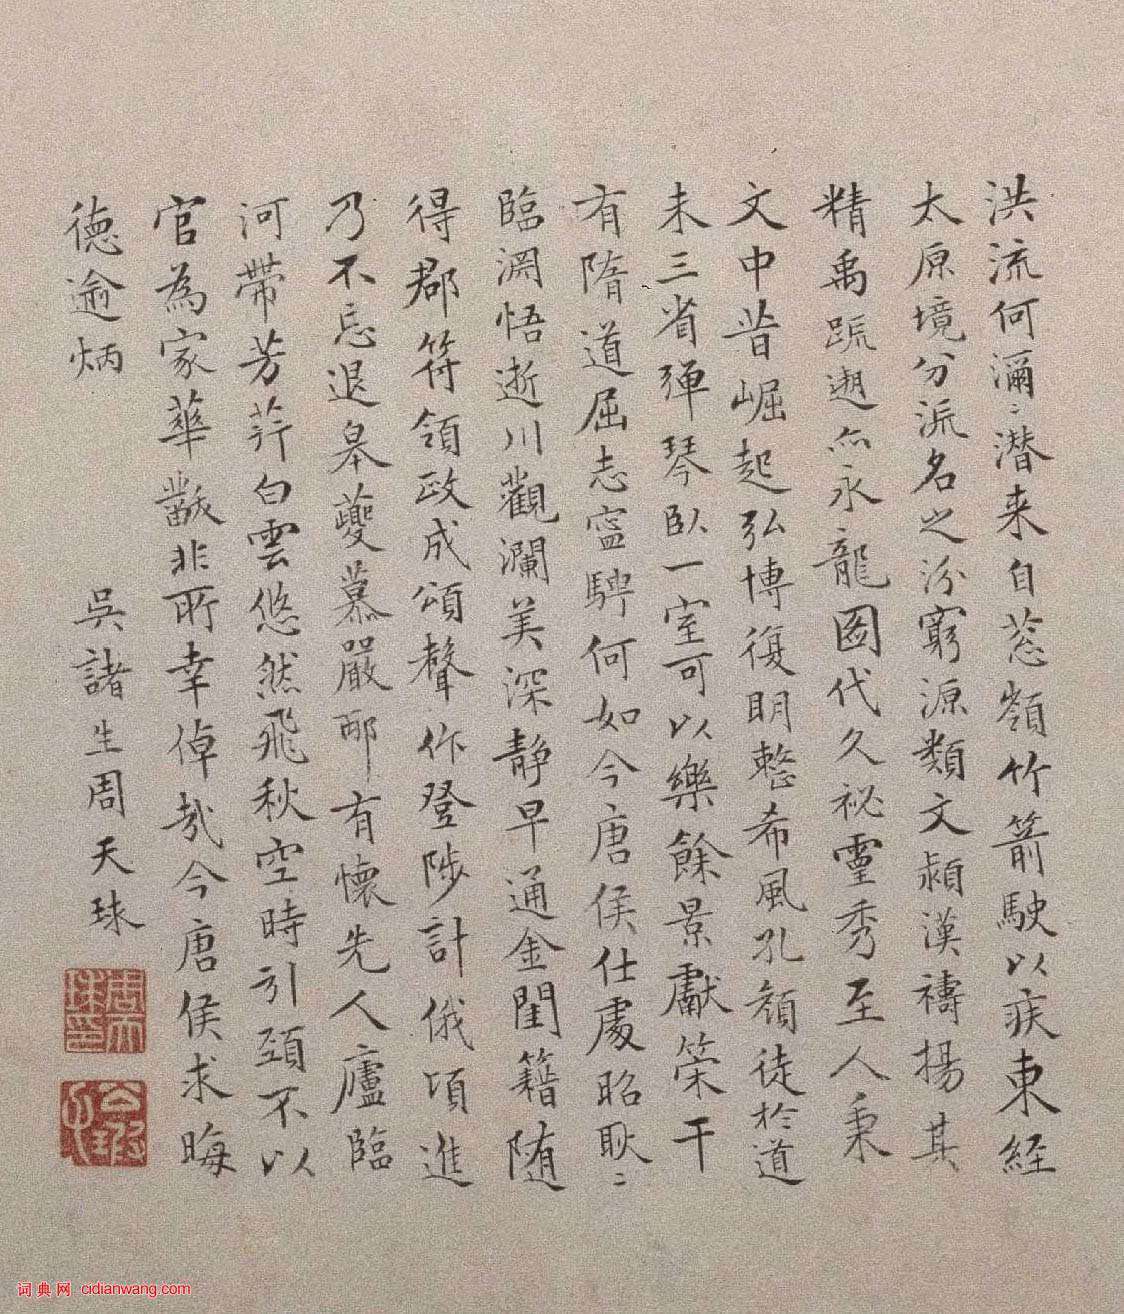 洪流何瀰〻潛来自葱嶺竹箭駛以疾東經
太原境分派名之汾窮源類文潁漢禱揚其
精禹䟽遡亦永龍圖代久祕靈秀至人秉
文中昔崛起弘博復明慜希風孔顏徒於道
未三省彈琴臥一室可以樂餘景獻策干
有隋道屈志寧騁何如今唐侯仕處昭耿〻
臨淵悟逝川觀瀾美深靜早通金閨籍随
得郡符領政成頌聲作登陟計俄頃進
乃不忘退皋夔慕嚴邴有懷先人廬臨
河帶芳荇白雲悠然飛秋空時引頸不以
官為家華黻非所幸倬哉今唐侯求晦
德逾炳
吳諸生周天球
周天球印
公瑕氏
词典网 cidianwang.com